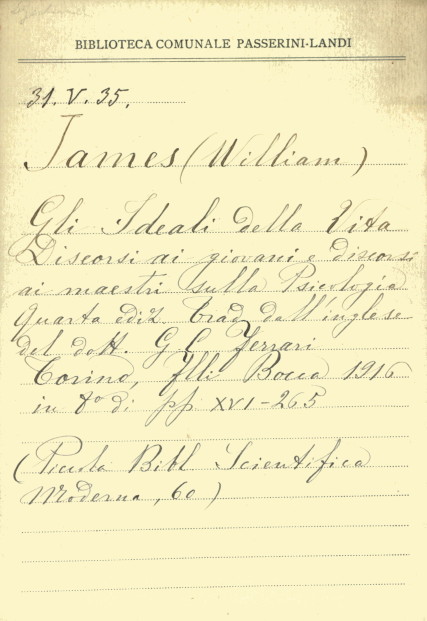 BIBLIOTECA COMUNALE PASSERINI-LANDI
31.V.35.
James (William)
Gli Ideali della Vita
Discorsi ai giovani e discorsi
ai maestri sulla Psicologia
Quarta ediz. Trad. dall'inglese
del dott. G. C. Ferrari
Torino, Flli Bocca 1916
in 8º di pp XVI-265
(Piccola Bibl Scientifica
Moderna, 60)